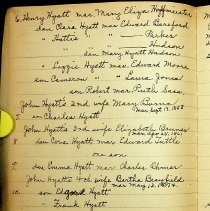 6. Henry Hyatt mar. Mary Eliza Hoffmaster
dau Clara Hyatt mar Edward Basford
" Hattie " — Parker
" " — Hudson
dau Mary Hyatt Hudson
" Lizzie Hyatt mar. Edward Moore
son Cameron " " Laura Jones
son Robert mar Ruth Sass.
John Hyatt's 2nd wife Mary Burns
mar Sept 17, 1858
7. son Charles Hyatt
John Hyatt's 3rd wife Elizabeth Bruner
mar Apr 25, 18
8. dau Cora Hyatt mar Edward Tuttle
one son
9. dau Emma Hyatt mar Charles Ebner
John Hyatt's 4th wife Bertha Barnfield
mar May 12, 1874.
10. son Edgar Hyatt
Frank Hyatt